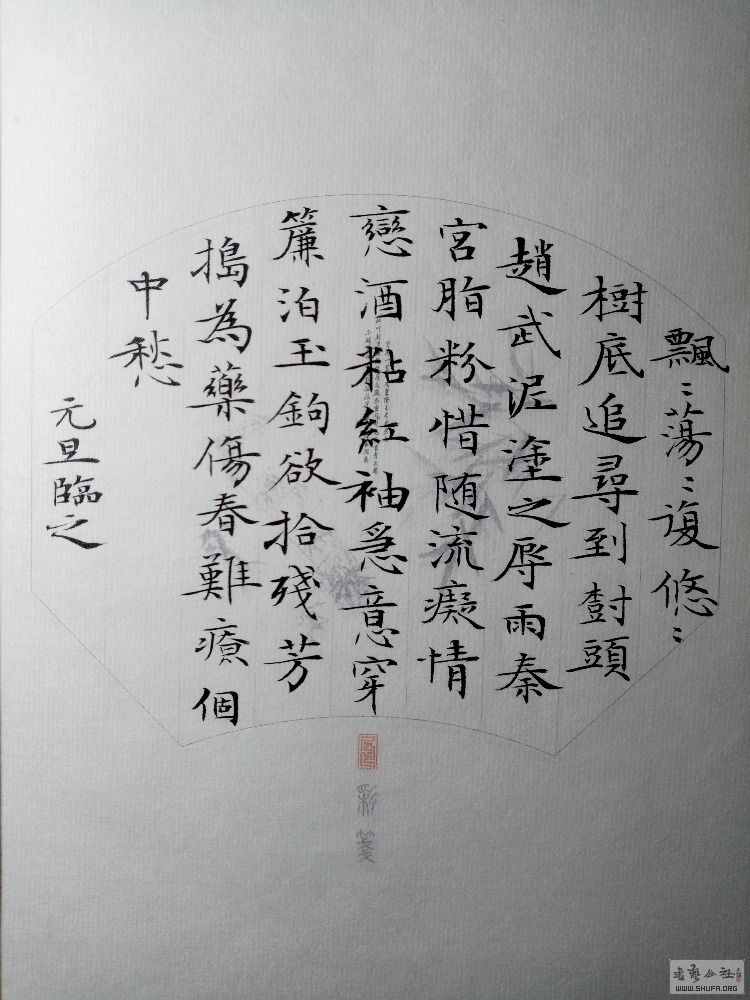 飄〻蕩〻復悠〻
樹底追尋到樹頭
趙武泥塗之辱雨秦
宮脂粉惜随流癡情
戀酒粘紅袖急意穿
簾泊玉鉤欲拾殘芳
搗為藥傷春難療個
中愁
元旦臨之
彩箋
書藝公社
WWW.SHUFA.ORG